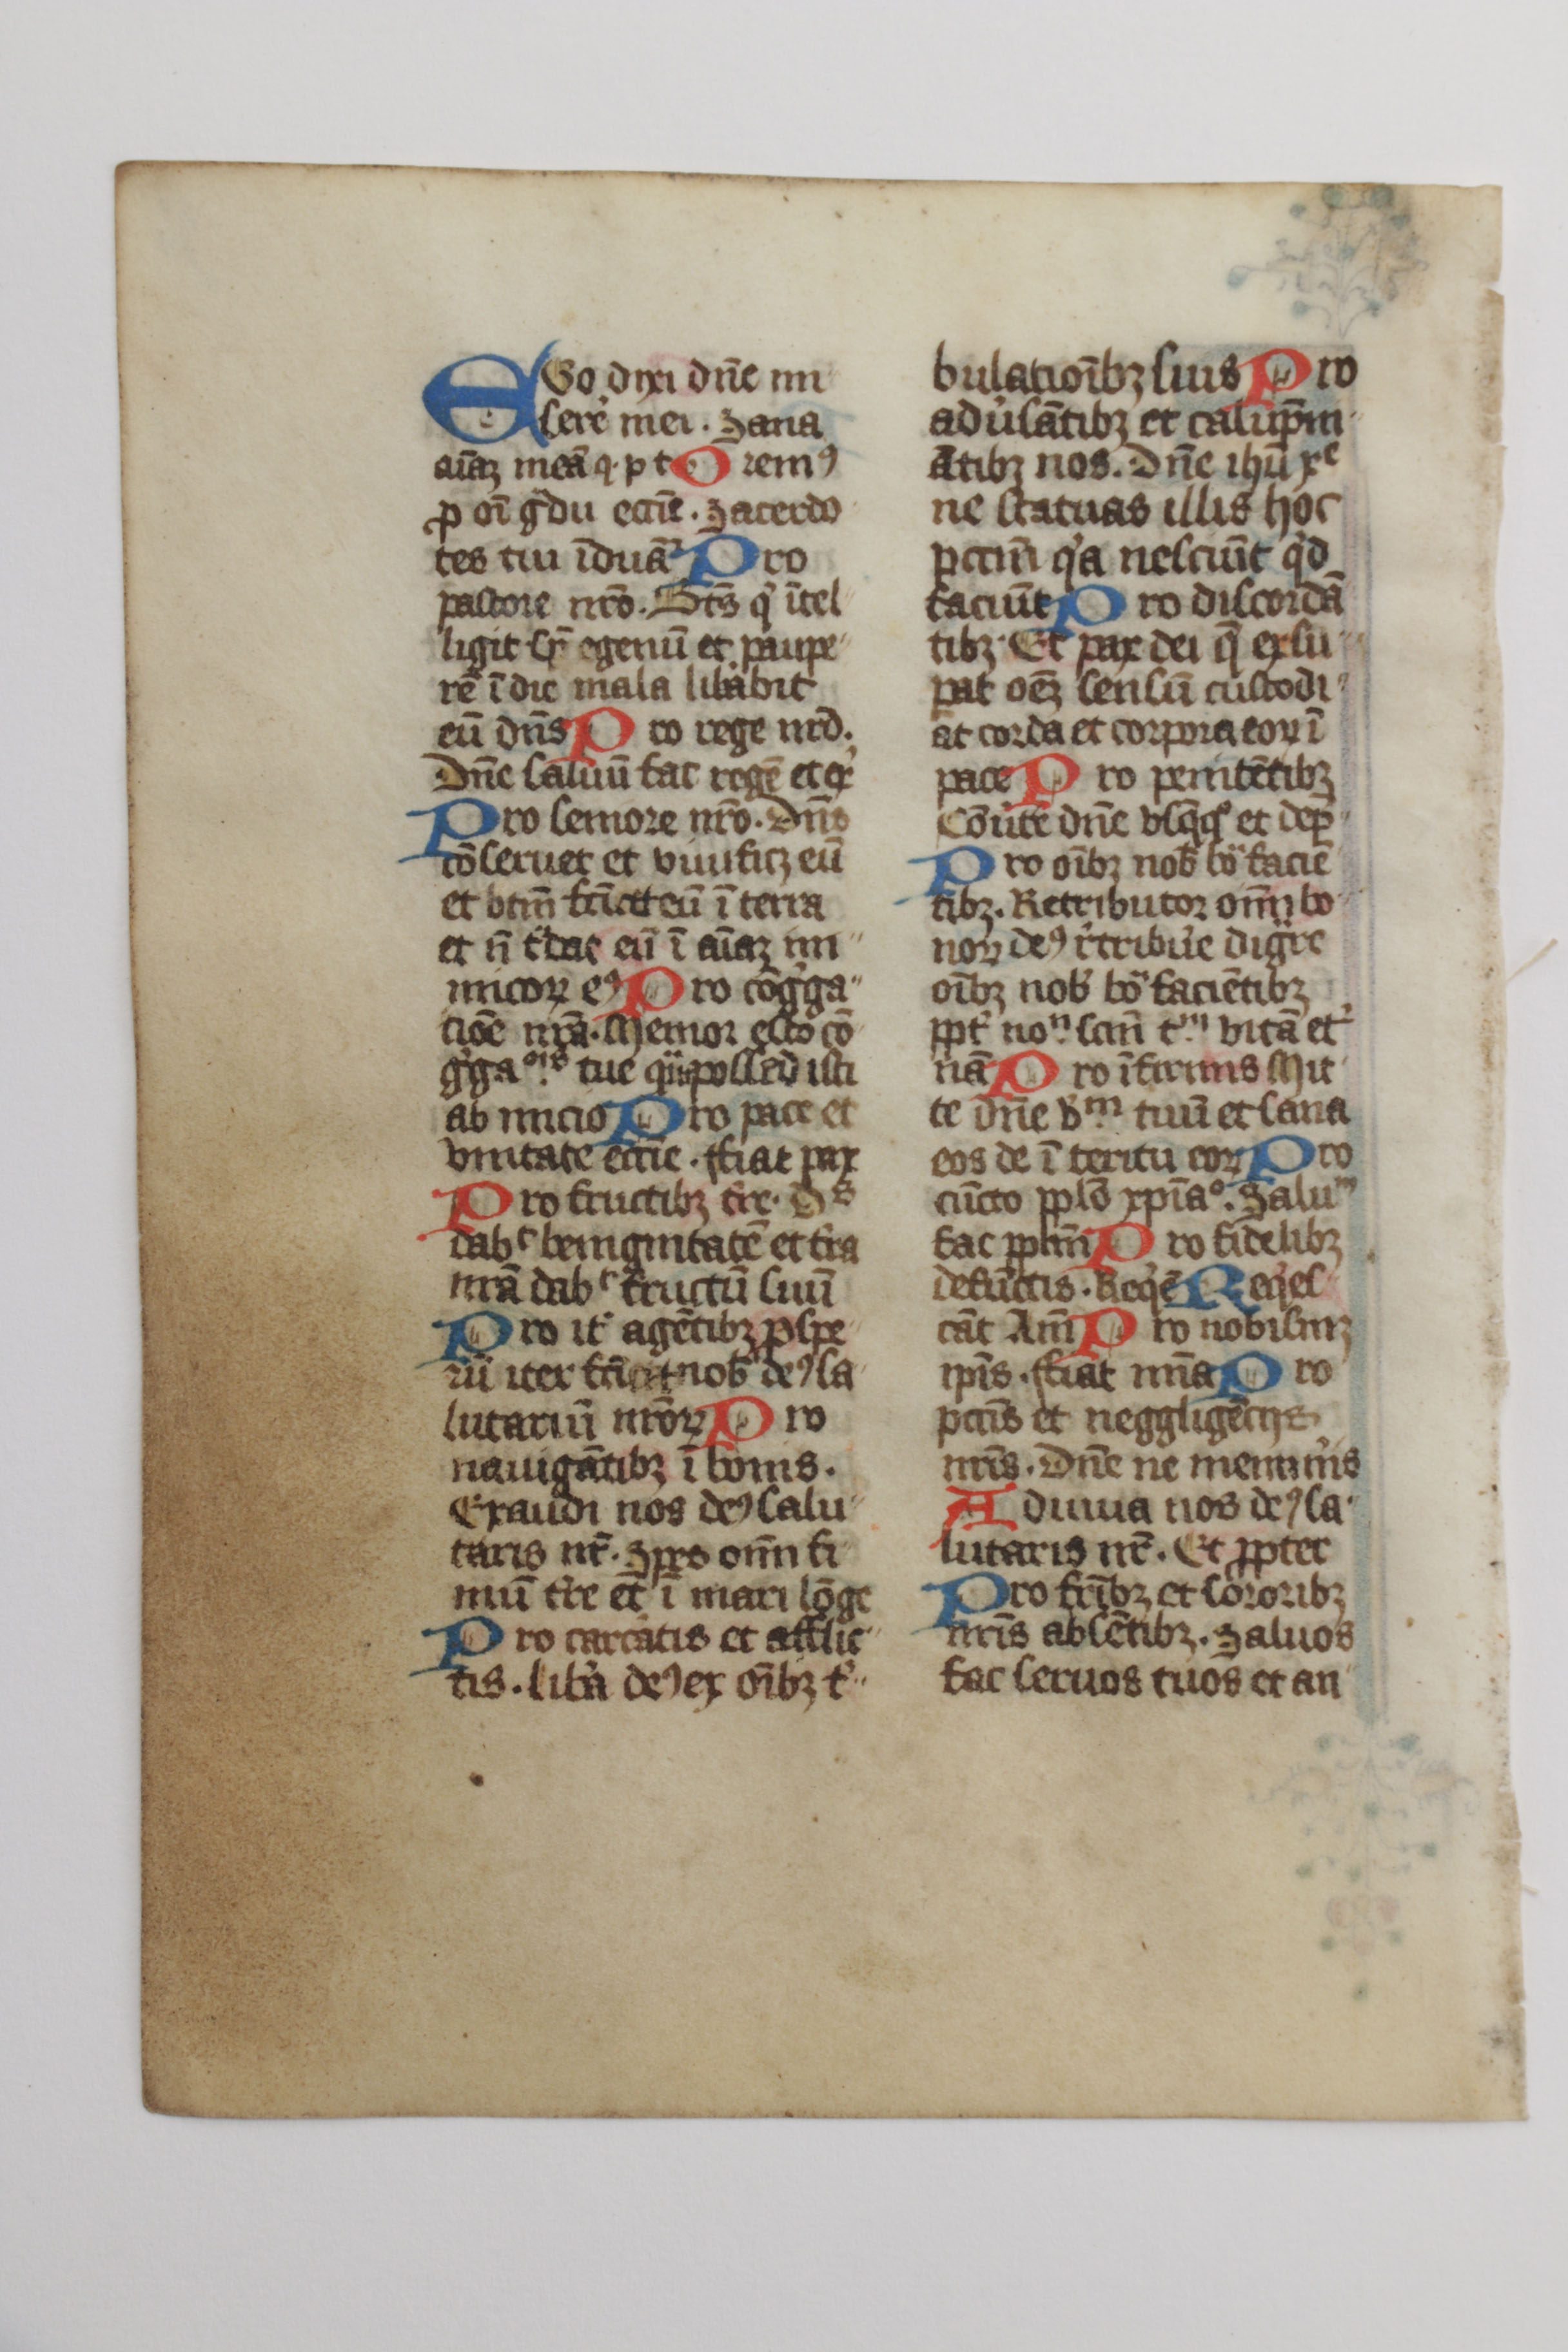 EGo dixi dn̄e mi
sere᷒ mei. Sana
aīaꝫ meā q. p t Oremꝰ
ꝓ oī gͣdu eccīe. Sacerdo
tes tui īduāt᷒ Pro
pastore nr̄o. Bt̄s qͥ ītel
ligit sr̄ egenū et paupe
rē ī die mala lib᷒abit
eū dn̄s Pro rege nr̄o.
Dn̄e saluū fac regē et ex᷒
Pro semore nr̄o. Dn̄s
cōseruet et viuificꝫ eū
et btm̄ fc̄iat eū ī terra
et n̄ tͣdat eū ī aīaꝫ ini
micoꝝ eꝰ Pro cōgͤga
ciōe nr̄a. Memor esto cō
gͤgaoīs tue quā possedisti
ab inicio Pro pace et
vnitate eccīe. ffiat pax
Pro fructibꝫ t᷒re. Ds
dabͭ benignitatē et t᷒ra
nr̄a dabͭ fructū suū
Pro it᷒ agētibꝫ ꝓspe
rū iter fc̄iat nob̄ deꝰ sa
lutariū nr̄oꝝ Pro
nauigātibꝫ ī bonis.
Exaudi nos deꝰ salu
taris nr̄. Spes omī fi
niū t᷒re et̄ ī mari lōge
Pro carc᷒atis et afflic
tis. lib᷒a deꝰ ex oībꝫ t᷒
bulatiōibꝫ suis Pro
adu᷒sātibꝫ et calūpni
ātibꝫ nos. Dn̄e ihū xͤ
ne statuas illis hoc
pccm̄ qͥa nesciūt qͥd
faciūt Pro discordā
tibꝫ. Et pax dei q̄ exsu
pat oēꝫ sensū custodi
at corda et corpora eoꝝ ī
pace Pro penitētibꝫ
Cōu᷒te dn̄e vsq̄qͦ et dep̄
Pro oībꝫ nob̄ boͣ faciē
tibꝫ. Retributor omī bo
noꝝ deꝰ r᷒tribue᷒ digͣre
oībꝫ nob̄ boͣ faciētibꝫ
ꝓpt᷒ noⁿ scm̄ tᵐ vitā et᷒
nā Pro īfirmis Mit
te dn̄e v᷒ᵐ tuū et sana
eos de īteritu eoꝝ Pro
cūcto ppl̄o xpīaº. Saluᵐ
fac pplm̄ Pro fidelibꝫ
defūctis. Reqͥē Reqͥes
cāt Am̄ Pro nobismꝫ
ip̄is. ffiat mīa Pro
pccīs et neggligēciis
nr̄is. Dn̄e ne memin᷒is
Adiuua nos deꝰ sa
lutaris nr̄. Et ꝓpter
Pro fr̄ibꝫ et sororibꝫ
nr̄is absētibꝫ. Saluos
fac seruos tuos et an